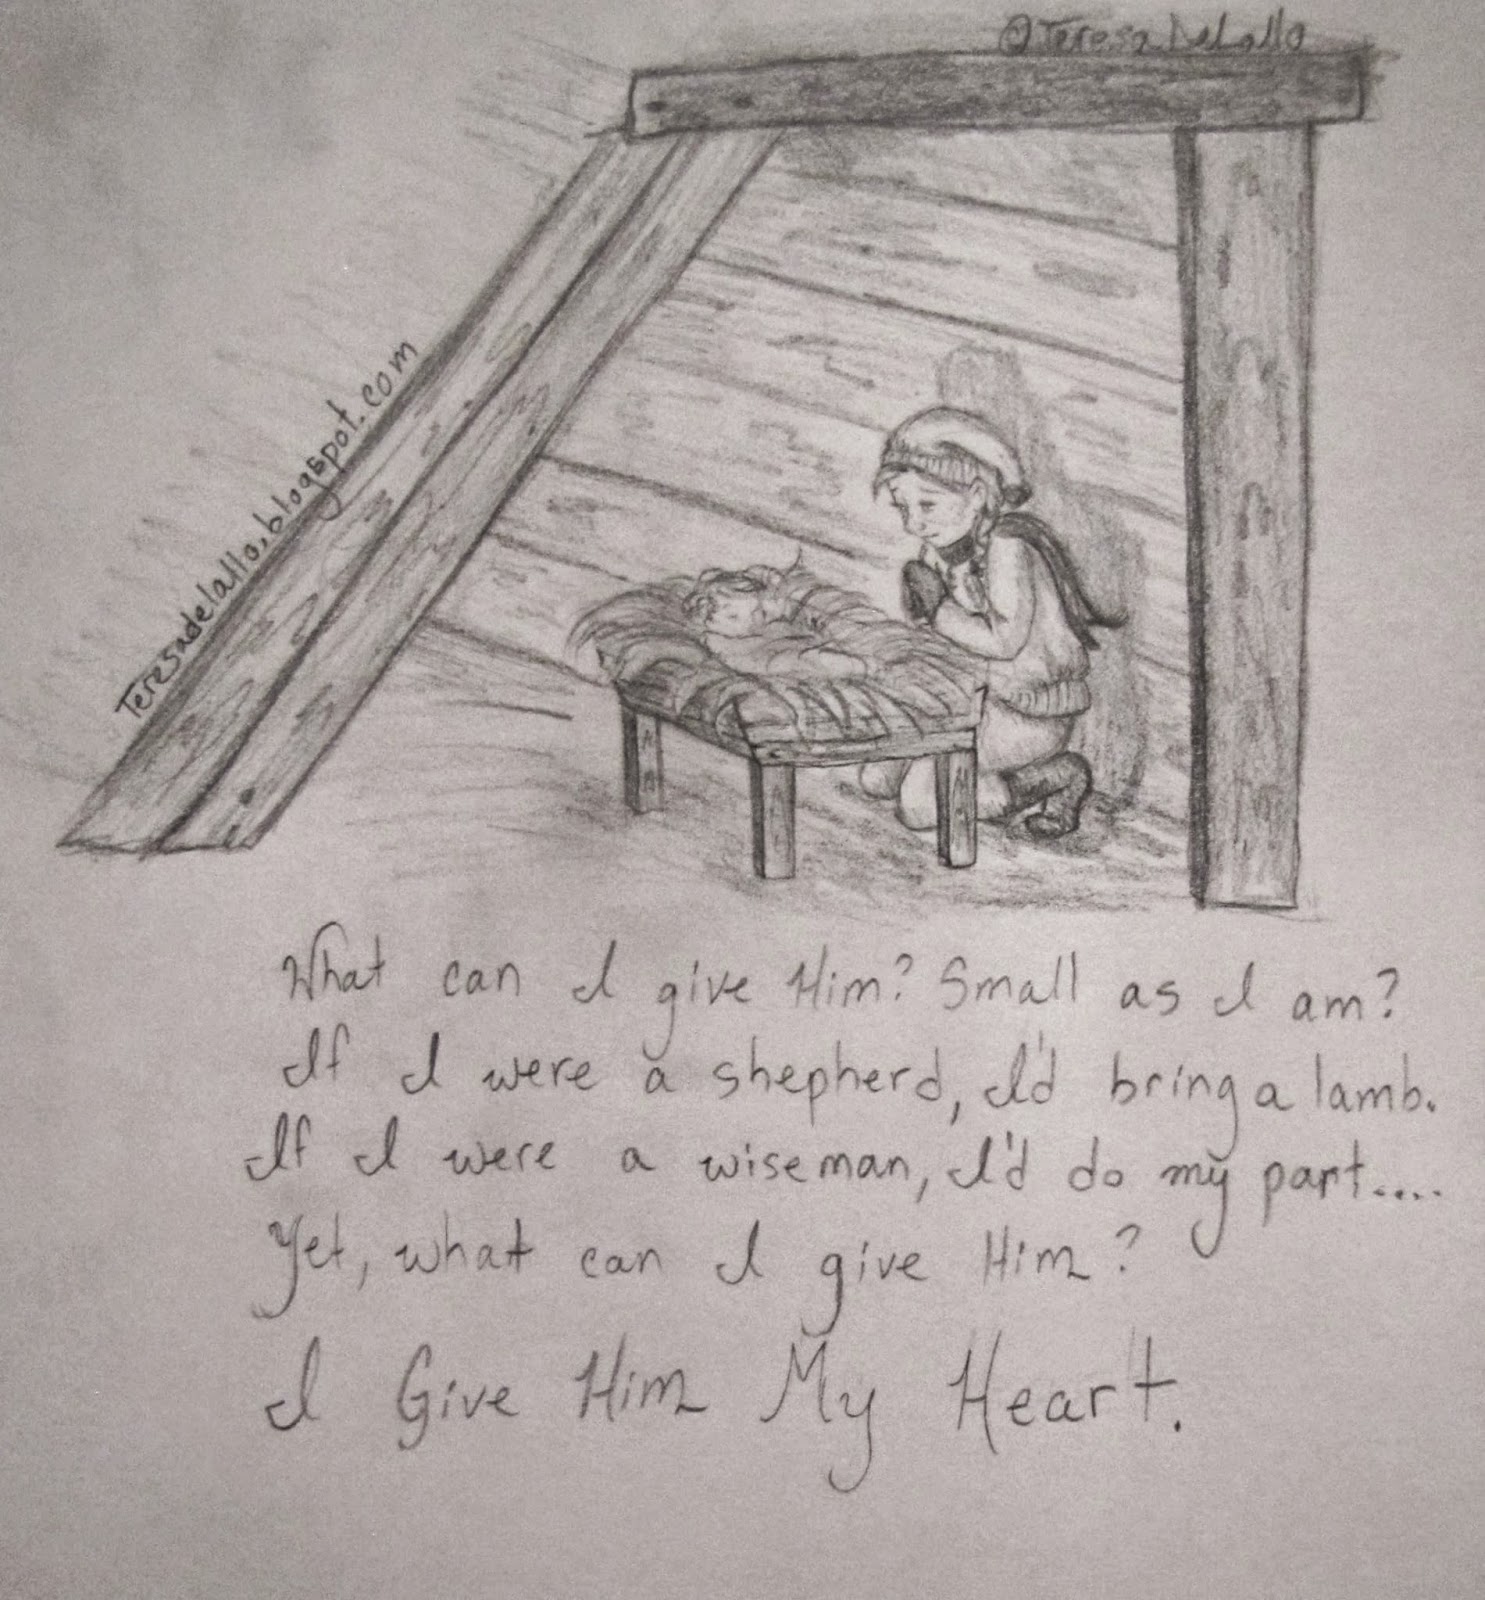 ©Teresa DeLallo
Teresadelallo.blogspot.com
What can I give Him? Small as I am?
If I were a shepherd, I'd bring a lamb.
If I were a wiseman, I'd do my part.....
Yet, what can I give Him?
I Give Him My Heart.